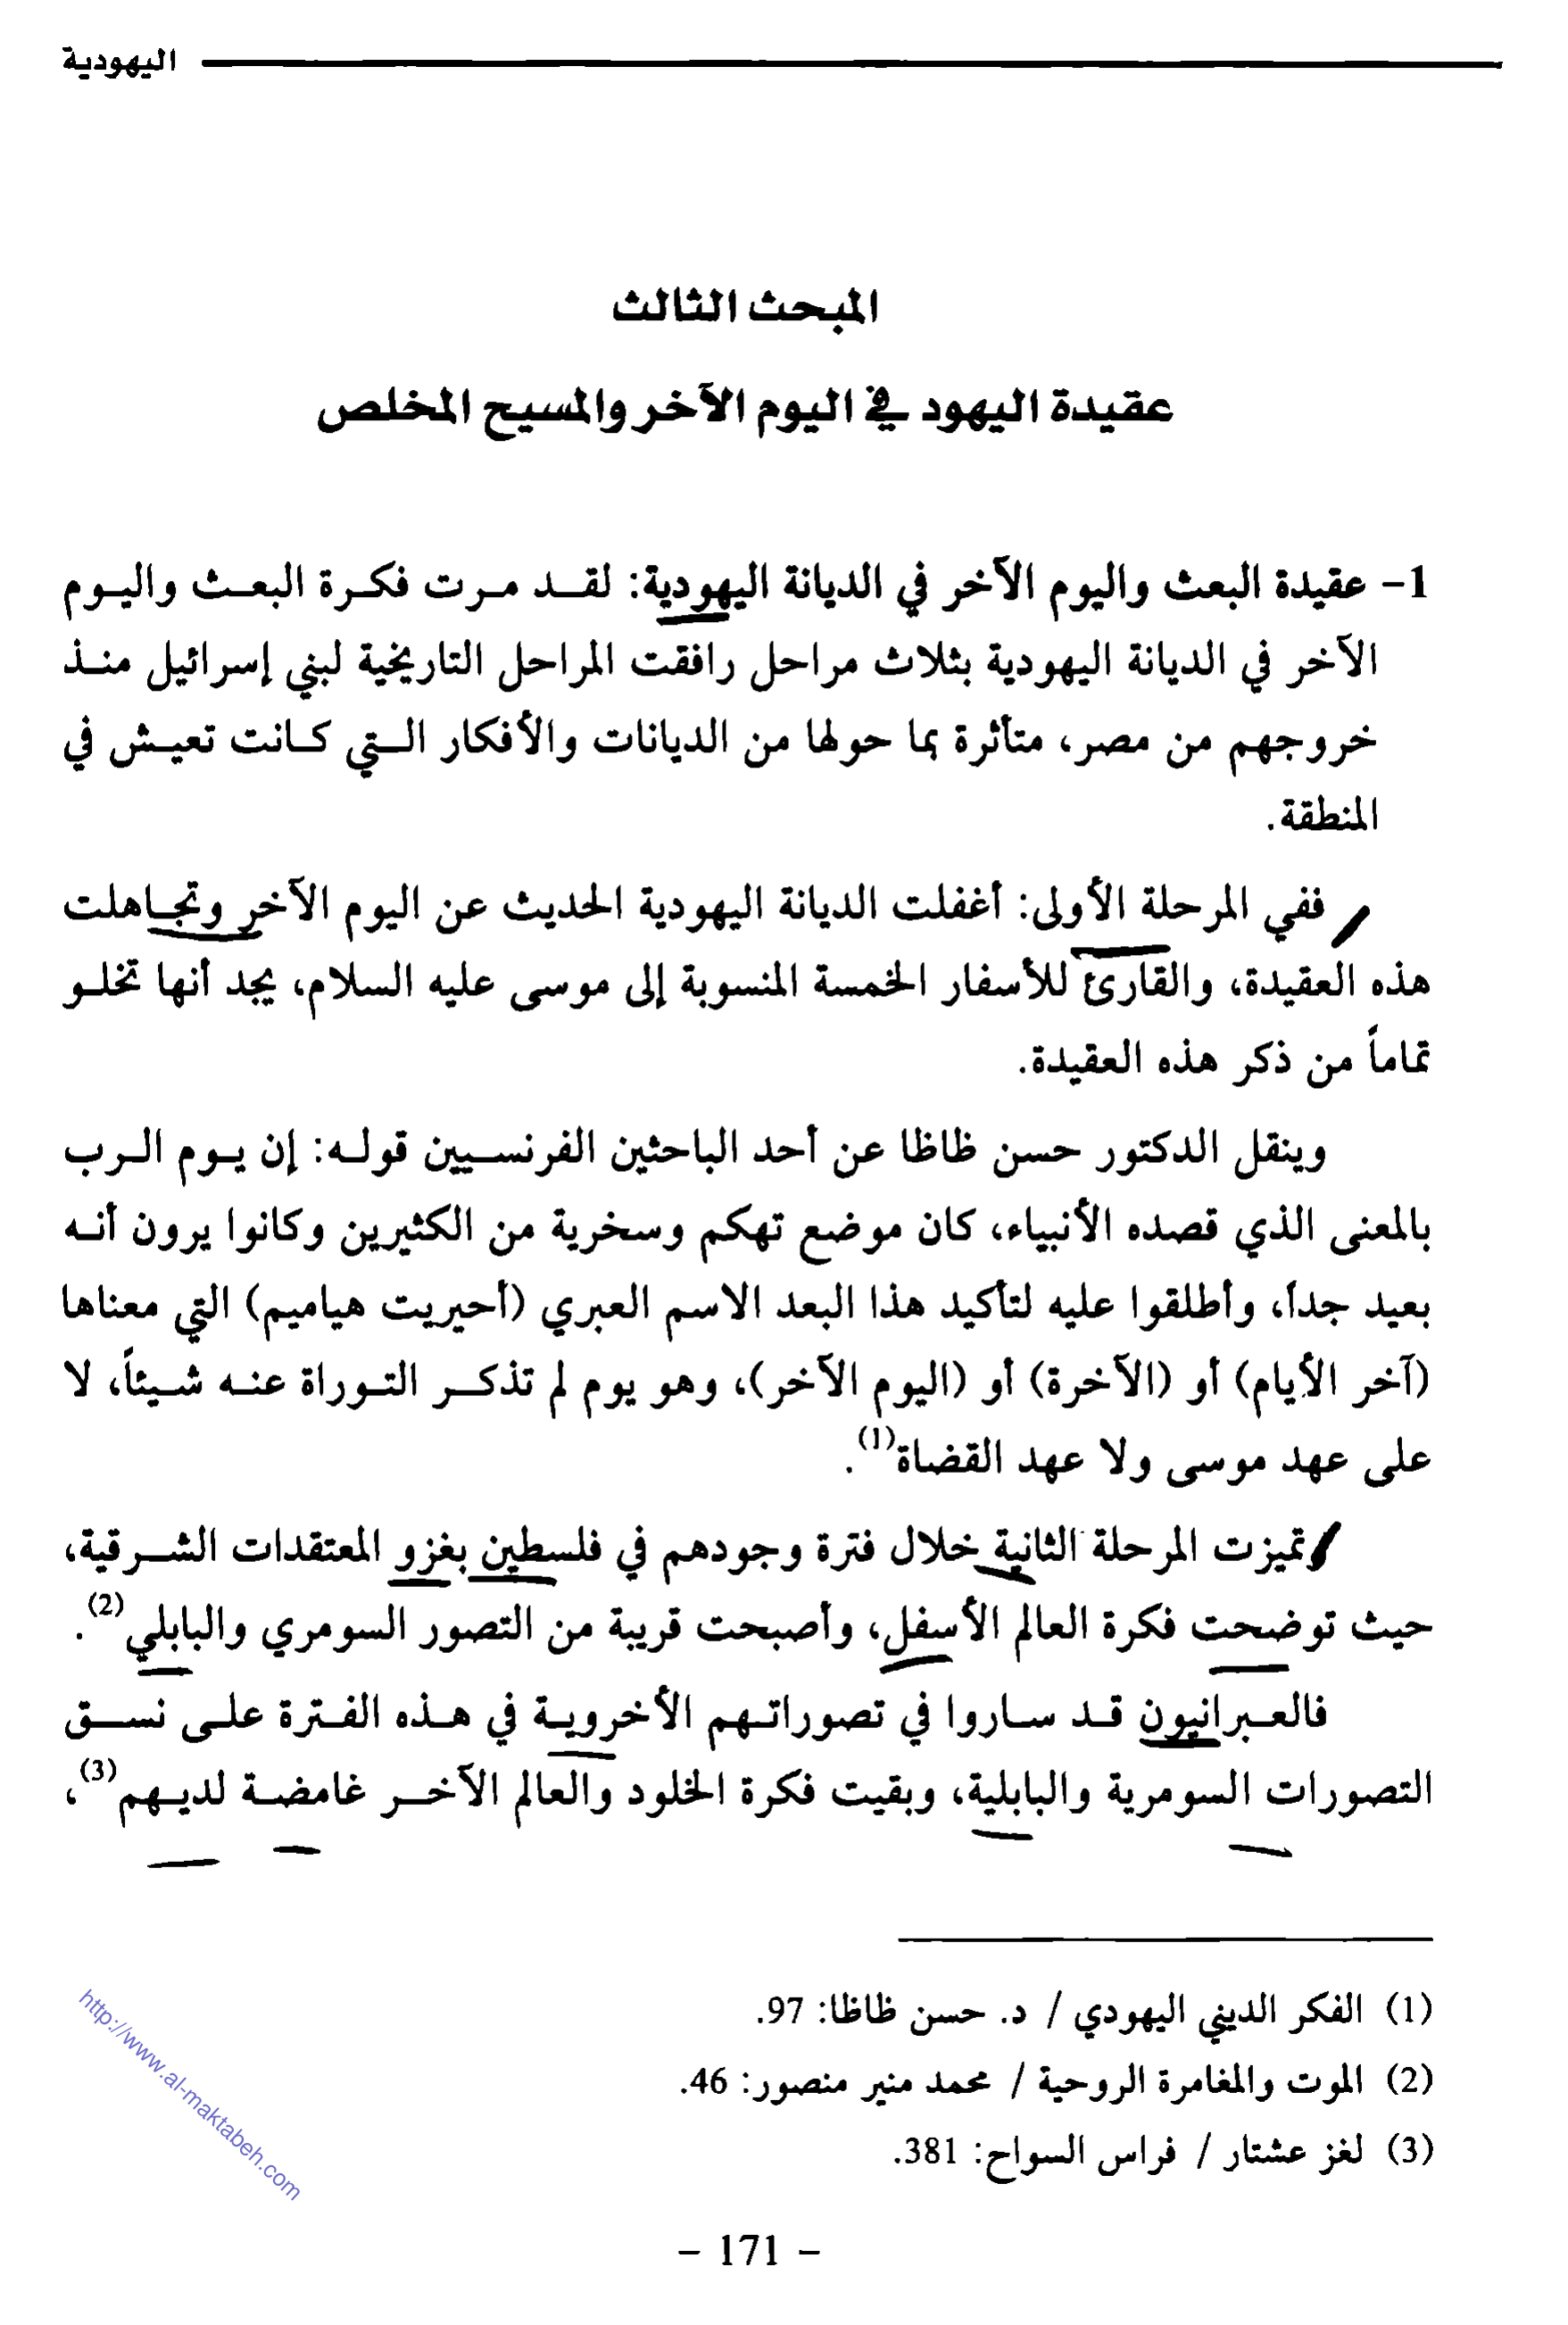 اليهودية
المبحث الثالث
عقيدة اليهود في اليوم الآخر والمسيح المخلص
1- عقيدة البعث واليوم الآخر في الديانة اليهودية: لقد مرت فكرة البعث واليوم
الآخر في الديانة اليهودية بثلاث مراحل رافقت المراحل التاريخية لبني إسرائيل منذ
خروجهم من مصر، متأثرة بما حولها من الديانات والأفكار التي كانت تعيش في
المنطقة.
ففي المرحلة الأولى: أغفلت الديانة اليهودية الحديث عن اليوم الآخر وتجاهلت
هذه العقيدة، والقارئ للأسفار الخمسة المنسوبة إلى موسى عليه السلام، يجد أنها تخلو
تماماً من ذكر هذه العقيدة.
وينقل الدكتور حسن ظاظا عن أحد الباحثين الفرنسيين قوله: إن يوم الرب
بالمعنى الذي قصده الأنبياء، كان موضع تهكم وسخرية من الكثيرين وكانوا يرون أنه
بعيد جداً، وأطلقوا عليه لتأكيد هذا البعد الاسم العبري (أحيريت هياميم) التي معناها
(آخر الأيام) أو (الآخرة) أو (اليوم الآخر)، وهو يوم لم تذكر التوراة عنه شيئاً، لا
على عهد موسى ولا عهد القضاة(1).
تميزت المرحلة الثانية خلال فترة وجودهم في فلسطين بغزو المعتقدات الشرقية،
حيث توضحت فكرة العالم الأسفل، وأصبحت قريبة من التصور السومري والبابلي(2).
فالعبرانيون قد ساروا في تصوراتهم الأخروية في هذه الفترة على نسق
التصورات السومرية والبابلية، وبقيت فكرة الخلود والعالم الآخر غامضة لديهم(3)،
(1) الفكر الديني اليهودي / د. حسن ظاظا: 97.
(2) الموت والمغامرة الروحية / محمد منير منصور: 46.
(3) لغز عشتار / فراس السواح: 381.
http://www.al-maktabeh.com
- 171 -